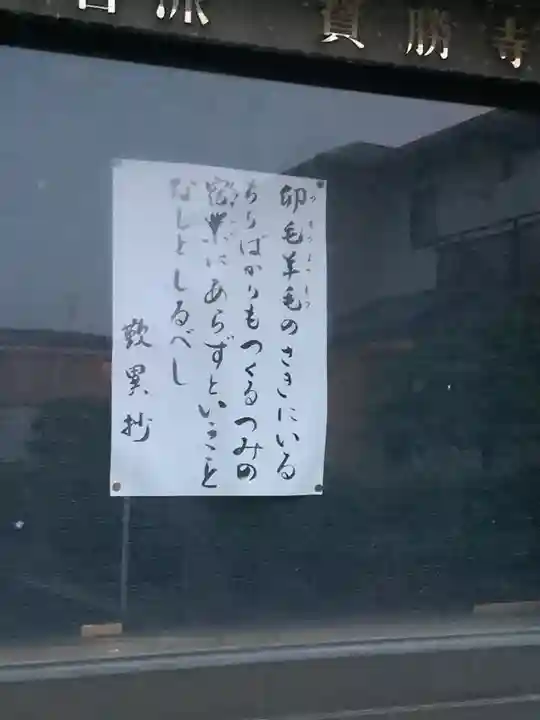 派 寳勝寺
卯毛羊毛のさきにいる
ちりばかりもつくるつみの
宿業にあらずということ
なしとしるべし
歎異抄